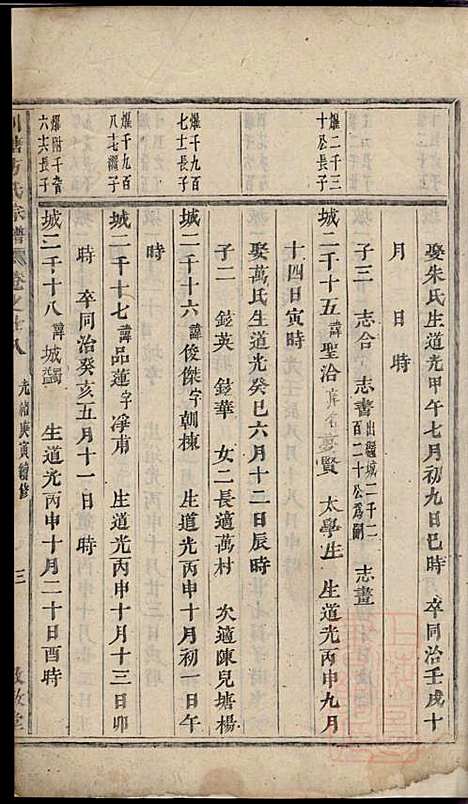 娶朱氏生道光甲午七月初九日巳時 卒同治壬戌十
月 日 時
子三 志合 志書出繼城二千二百二十公為嗣 志畫
燿二千三十公長子
城二千十五諱聖洽 賢 太學生 生道光丙申九月
十四日寅時
娶萬氏生道光癸巳六月十二日辰時
子二 鋑英 鋑華 女二長適萬村 次適陳兒塘楊
燿千九百七士長子
城二千十六諱俊傑字朝棟 生道光丙申十月初一日午
時
燿千九百八七繼子
城二千十七諱品蓮字凈甫 生道光丙申十月十三日卯
時 卒同治癸亥五月十一日 時
燿附千壹六六長子
城二千十八諱城蠲 生道光丙申十月二十日酉時
方氏宗譜 卷之 光緒庚寅續修 三 敦堂